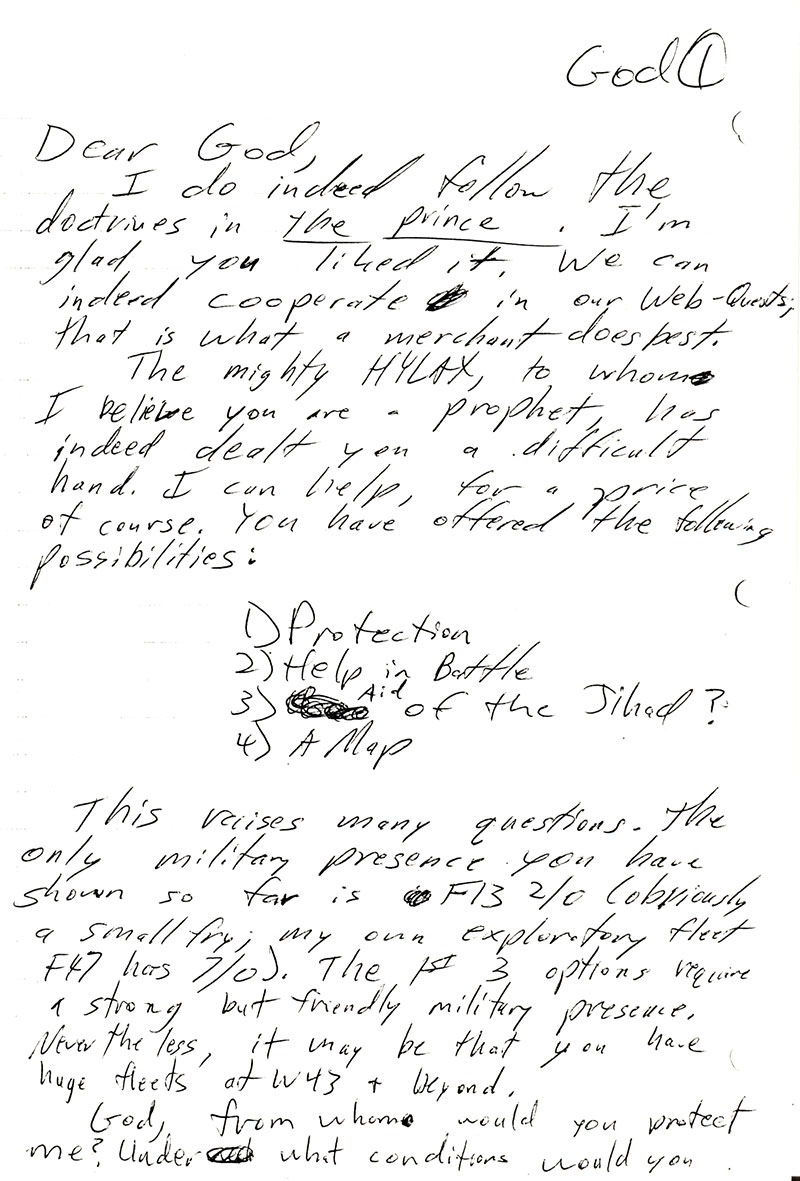 God 1
Dear God,
I do indeed follow the
doctrines in the prince. I'm
glad you liked it. We can
indeed cooperate in our Web-Quests;
that is what a merchant does best.
The mighty HYLAX, to whom
I believe you are a prophet, has
indeed dealt you a difficult
hand. I can help, for a price
of course. You have offered the following
possibilities:
1) Protection
2) Help in Battle
3) Aid of the Jihad?
4) A Map
This raises many questions. The
only military presence you have
shown so far is F13 2/0 (obviously
a small fry; my own exploratory fleet
F47 has 7/0). The 1st 3 options require
a strong but friendly military presence.
Never the less, it may be that you have
huge fleets at W43 + beyond.
God, from whom would you protect
me? Under what conditions would you